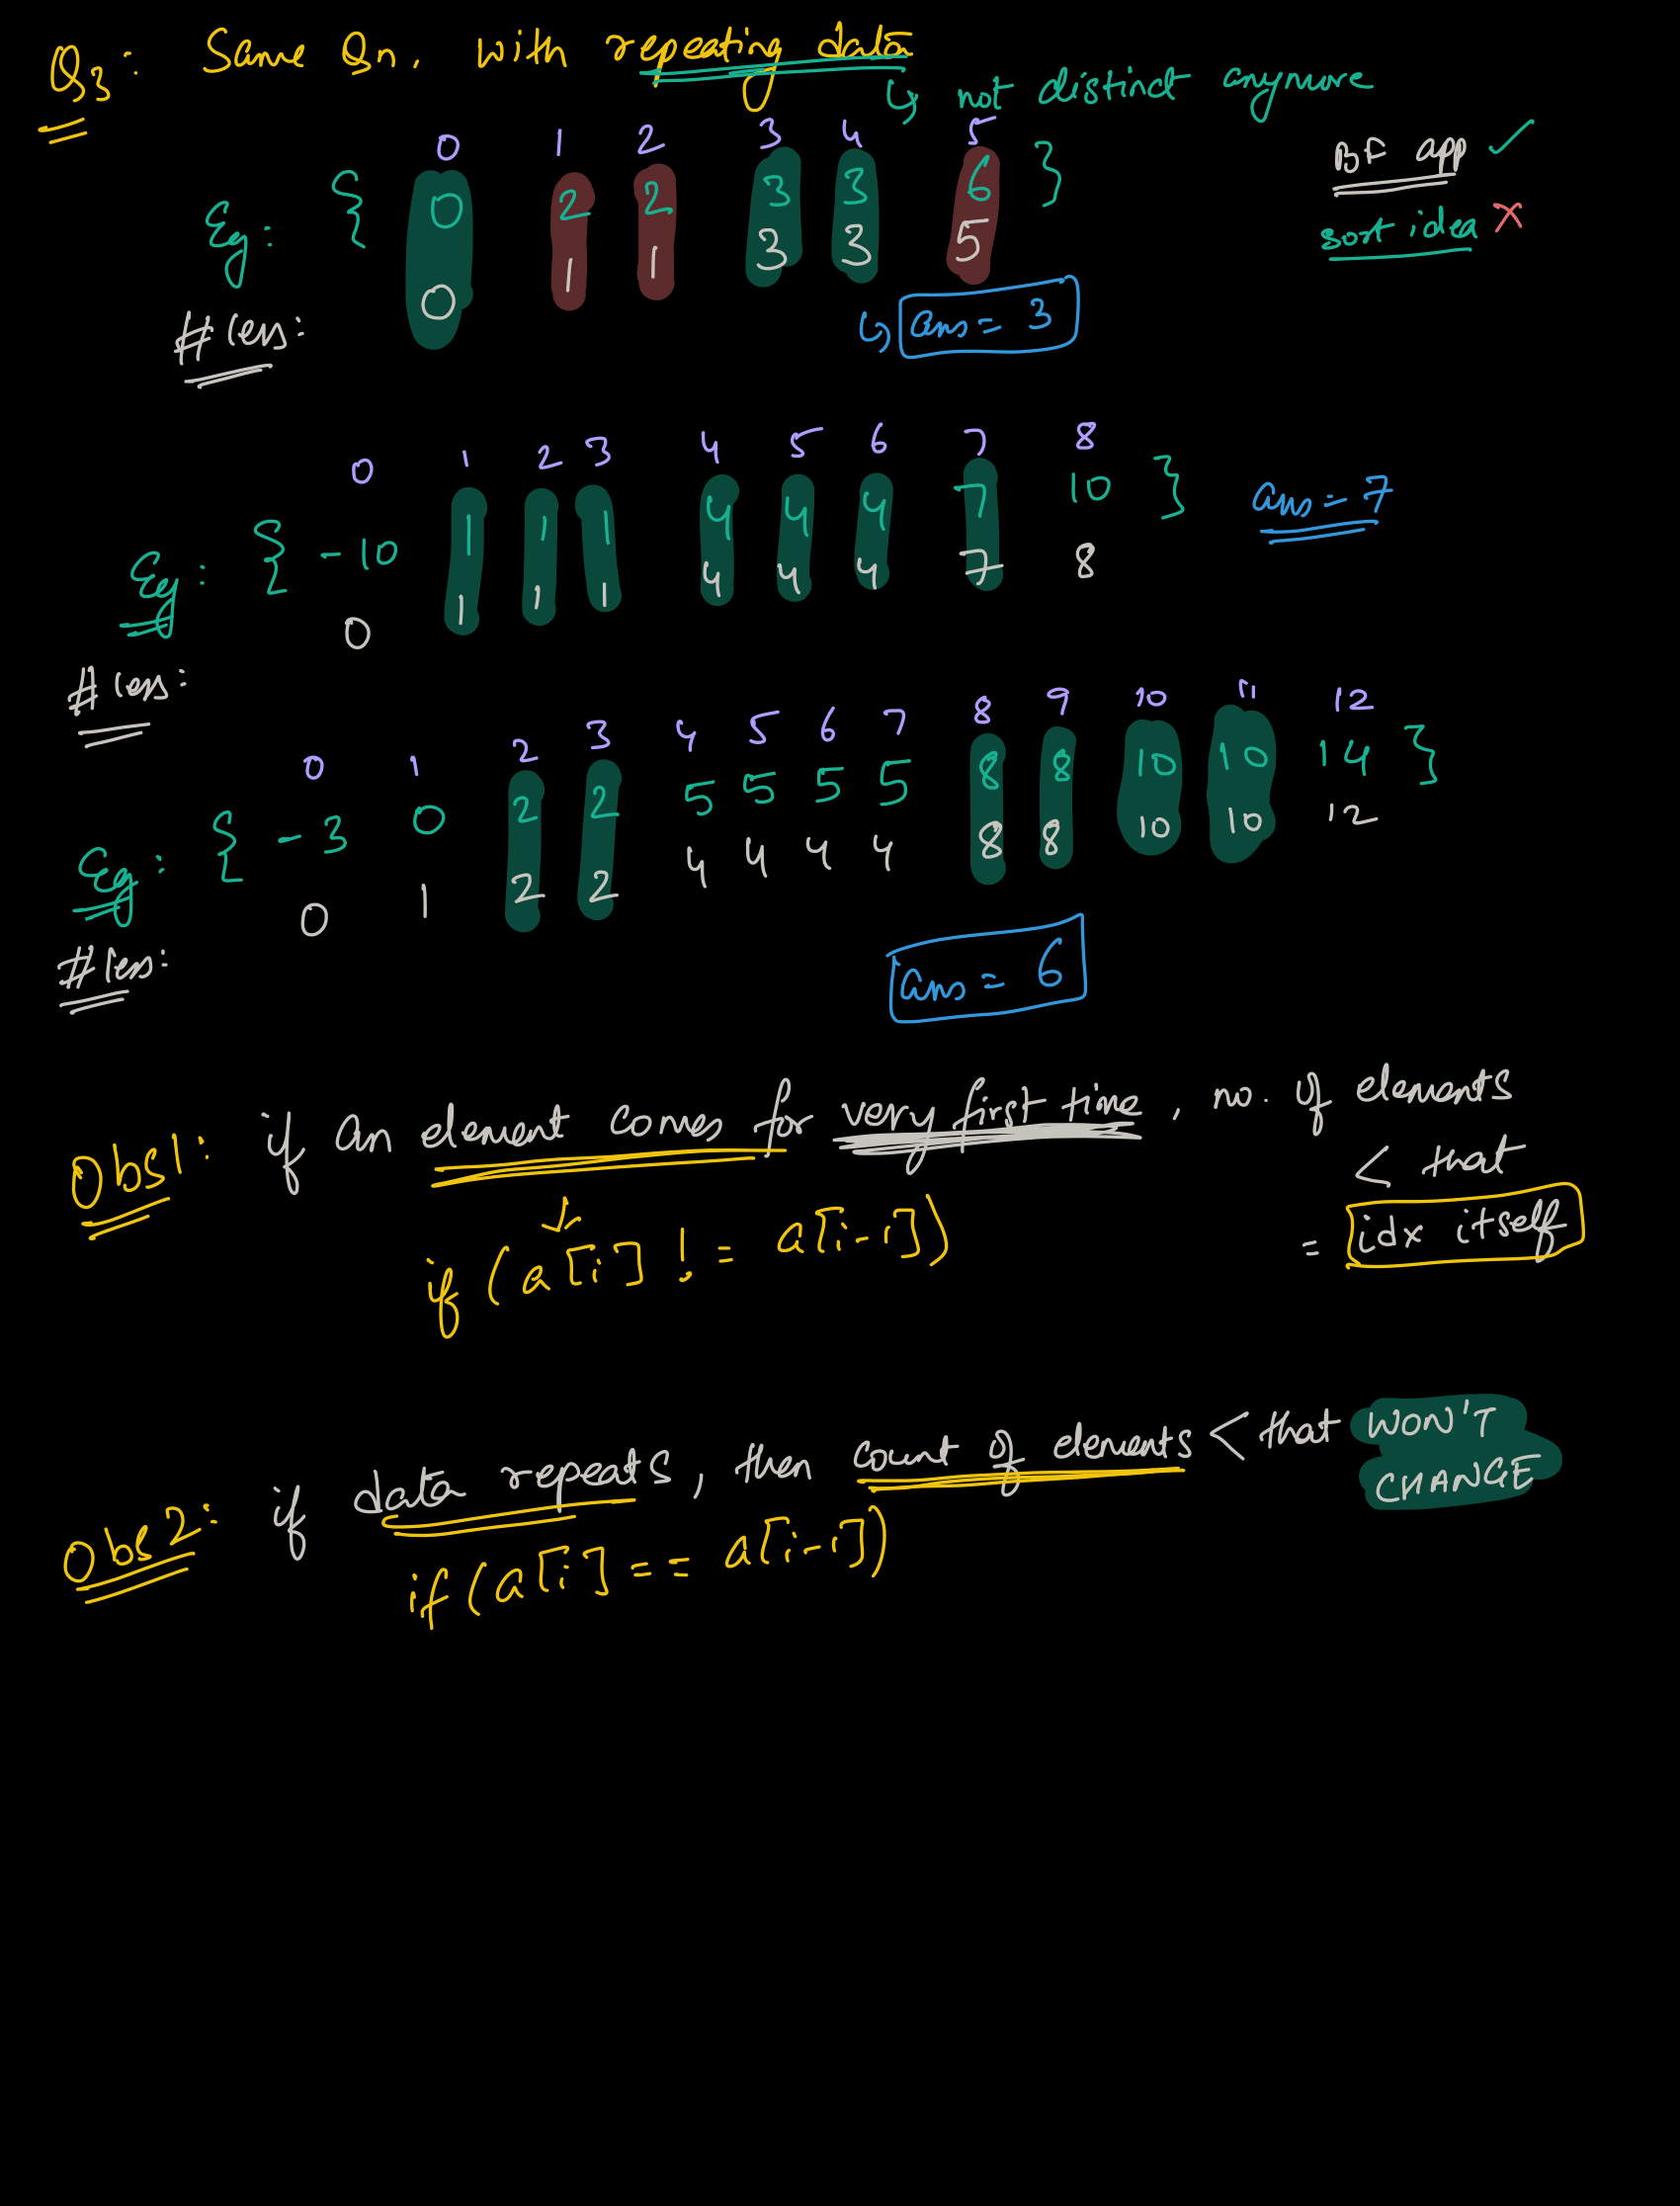 Q3: Same Qn. with repeating data
↳ not distinct anymore
BF app ✓
sort idea X
0 1 2 3 4 5
Eg: { 0 2 2 3 3 6 }
# less: 0 1 1 3 3 5
↳ ans = 3
0 1 2 3 4 5 6 7 8
Eg: { -10 1 1 1 4 4 4 7 10 }
ans = 7
# less: 0 1 1 1 4 4 4 7 8
0 1 2 3 4 5 6 7 8 9 10 11 12
Eg: { -3 0 2 2 5 5 5 5 8 8 10 10 14 }
# less: 0 1 2 2 4 4 4 4 8 8 10 10 12
ans = 6
Obs1: if an element comes for very first time, no. of elements
< that
= idx itself
if (a[i] != a[i-1])
Obs2: if data repeats, then count of elements < that WON'T
CHANGE
if (a[i] == a[i-1])